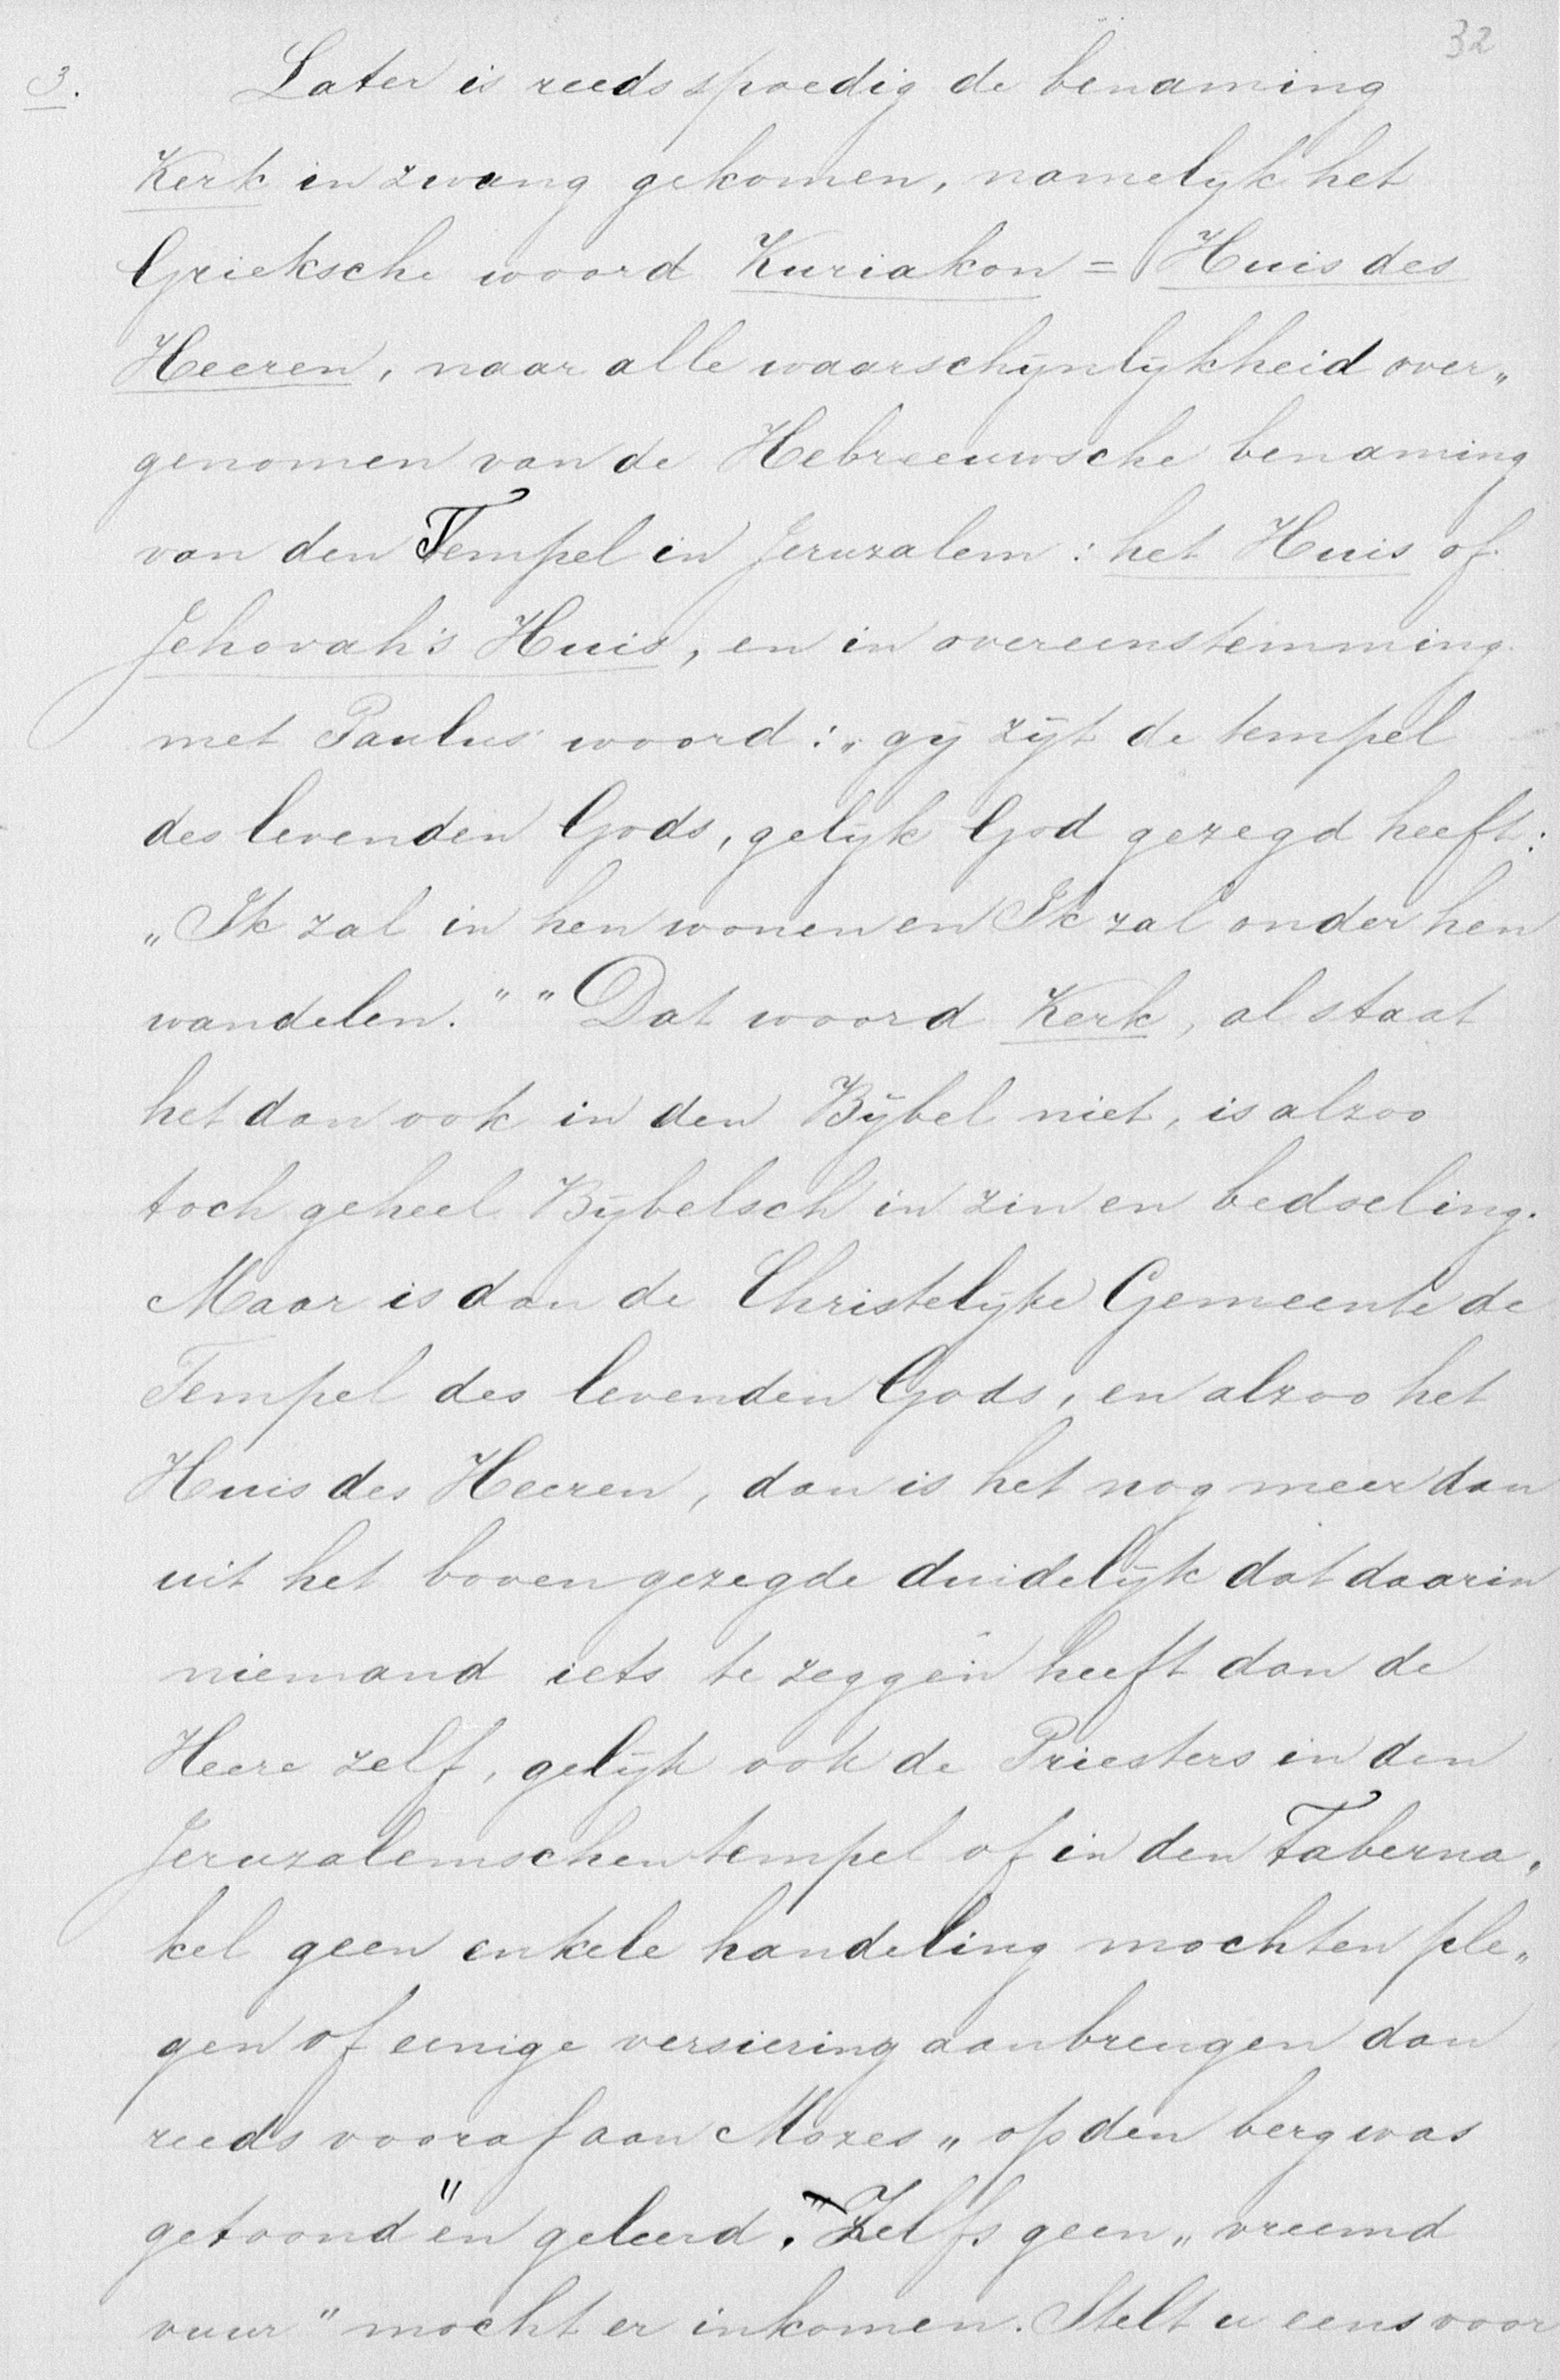 32
3. Later is reeds spoedig de benaming
Kerk in zwang gekomen, namelyk het
Grieksche woord Kuriakon = Huis des
Heeren, naar alle waarschÿnlÿkheid over„
genomen van de Hebreeuwsche benaming
van den Tempel in Jeruzalem: het Huis of
Jehovah's Huis, en in overeenstemming
met Paulus' woord: „gÿ zÿt de tempel
des levenden Gods, gelÿk God gezegd heeft:
„Ik zal in hen wonen en Ik zal onder hen
wandelen." " Dat woord Kerk, al staat
het dan ook in den Bÿbel niet, is alzoo
toch geheel Bÿbelsch in zin en bedoeling.
Maar is dan de Christelÿke Gemeente de
Tempel des levenden Gods, en alzoo het
Huis des Heeren, dan is het nog meer dan
uit het boven gezegde duidelÿk dat daarin
niemand iets te zeggen heeft dan de
Heere zelf, gelÿk ook de Priesters in den
Jeruzalemschen tempel of in den Taberna„
kel geen enkele handeling mochten ple„
gen of eenige versiering aanbrengen dan
reeds vooraf aan Mozes „op den berg was
getoond" en geleerd. Zelfs geen „vreemd
vuur" mocht er inkomen. Stelt u eens voor